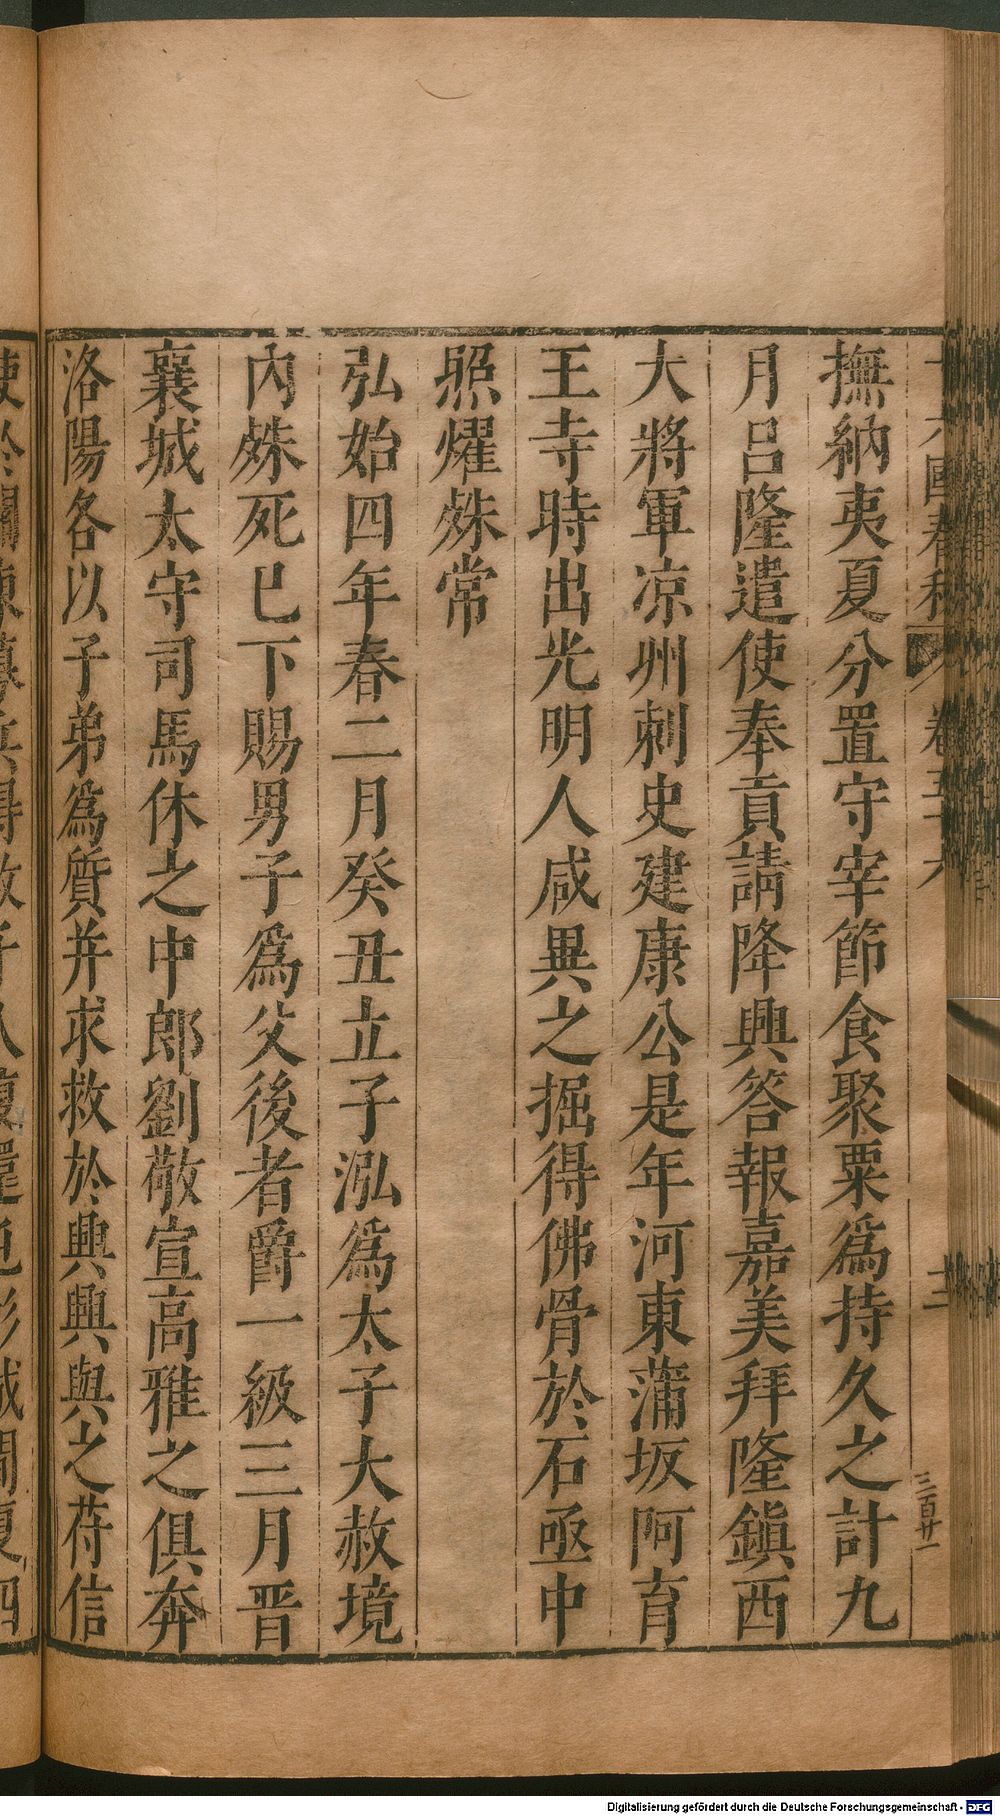 十六國春秋 卷五十六 二 三百廿一
撫納夷夏分置守宰節食聚粟爲持久之計九
月呂隆遣使奉貢請降興答報嘉美拜隆鎭西
大將軍凉州刺史建康公是年河東蒲坂阿育
王寺時出光明人咸異之掘得佛骨於石函中
照燿殊常
弘始四年春二月癸丑立子泓爲太子大赦境
內殊死已下賜男子爲父後者爵一級三月晉
襄城太守司馬休之中郎劉敬宣高雅之俱奔
洛陽各以子弟爲質并求救於興興與之苻信
Digitalisierung gefördert durch die Deutsche Forschungsgemeinschaft - DFG